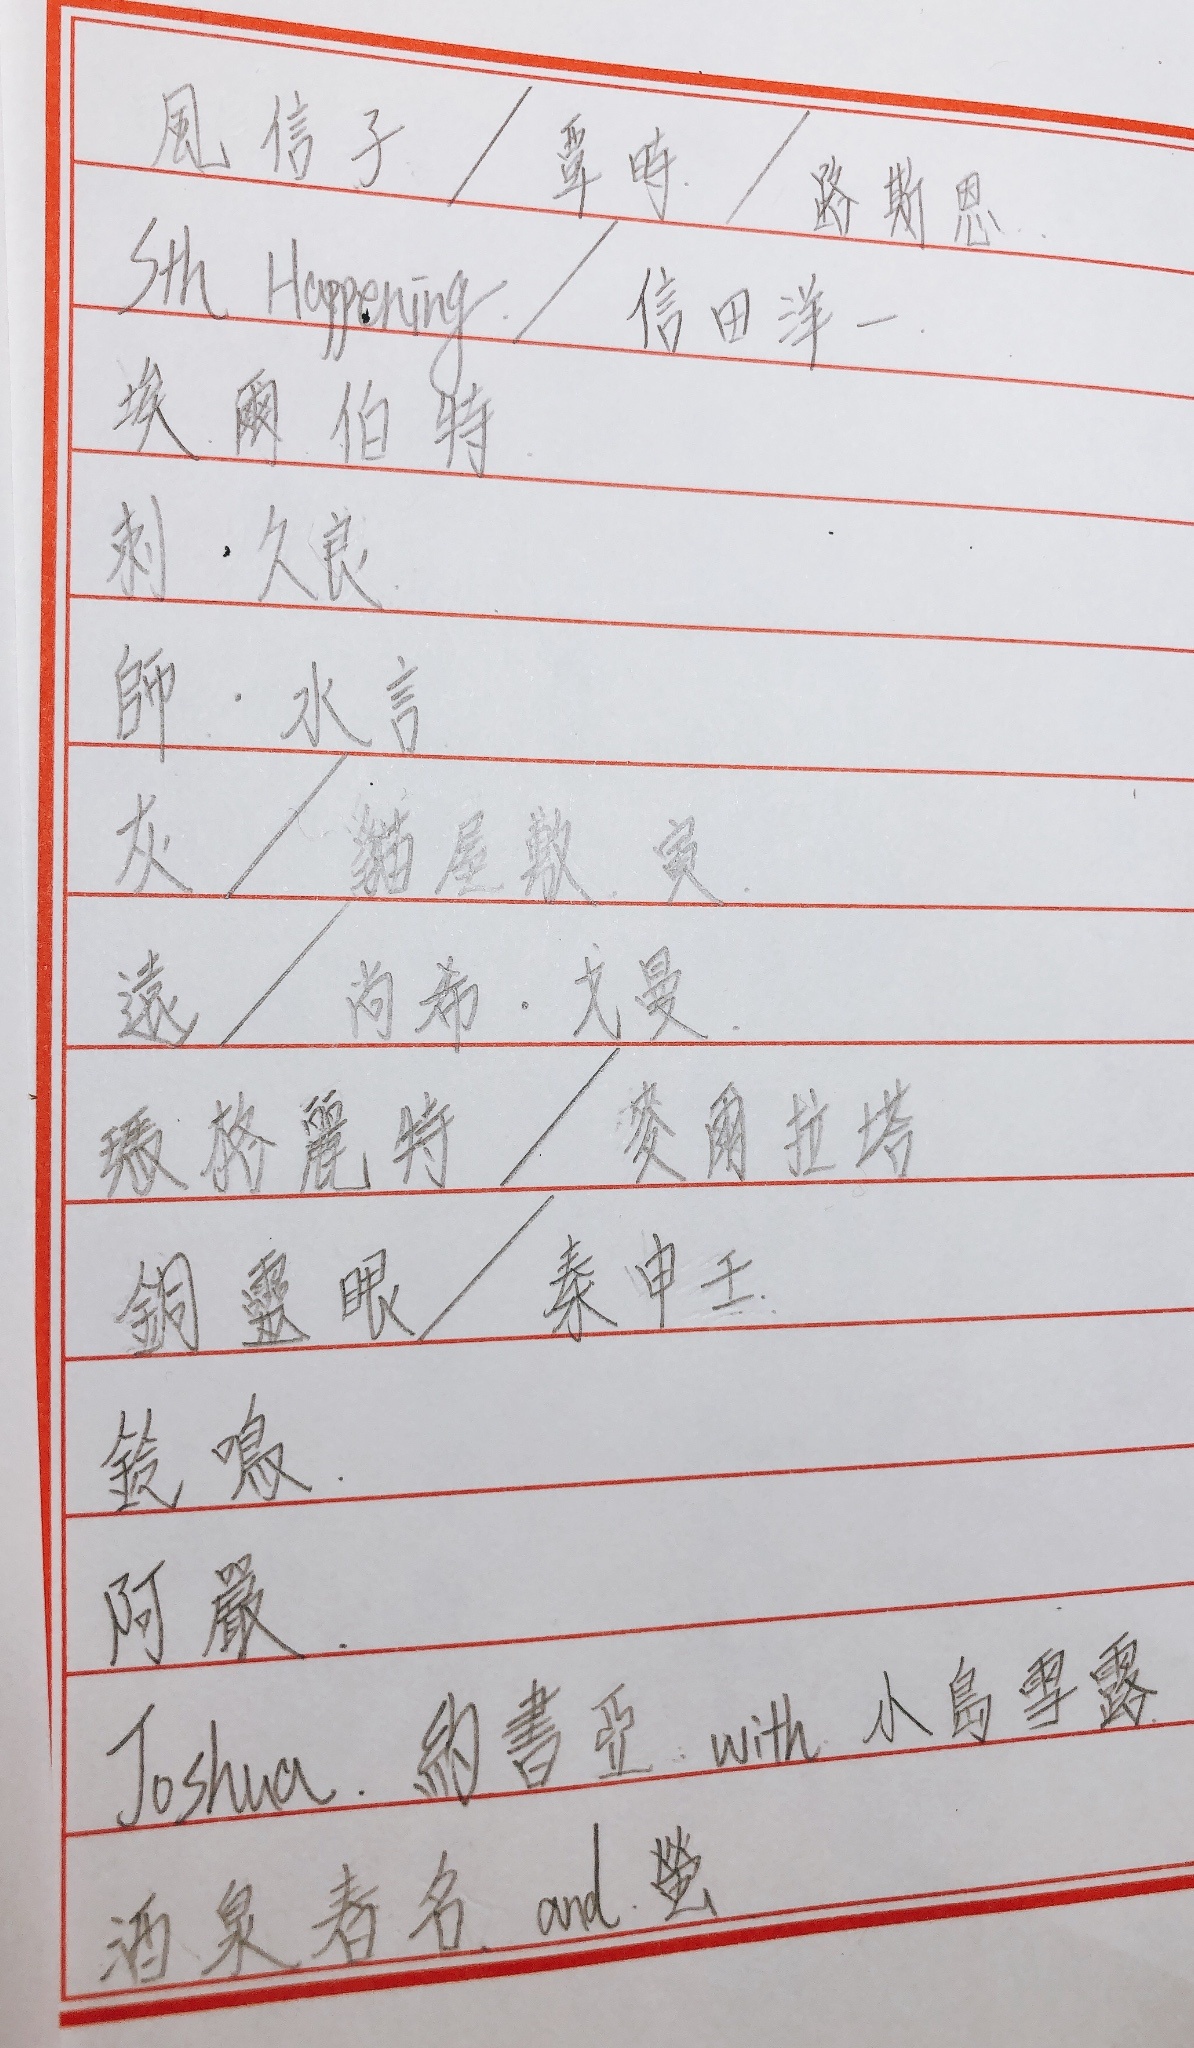 風信子／覃時／路斯恩
Sth Happening／信田洋一
埃爾伯特
刺·久良
師·水言
灰／貓屋敷 寅
遠／尚希·戈曼
瑪格麗特／麥爾拉塔
銅靈眼／秦申壬
鈴鳴
阿嚴
Joshua. 約書亞 with 小島雪露
酒泉者名 and 螢